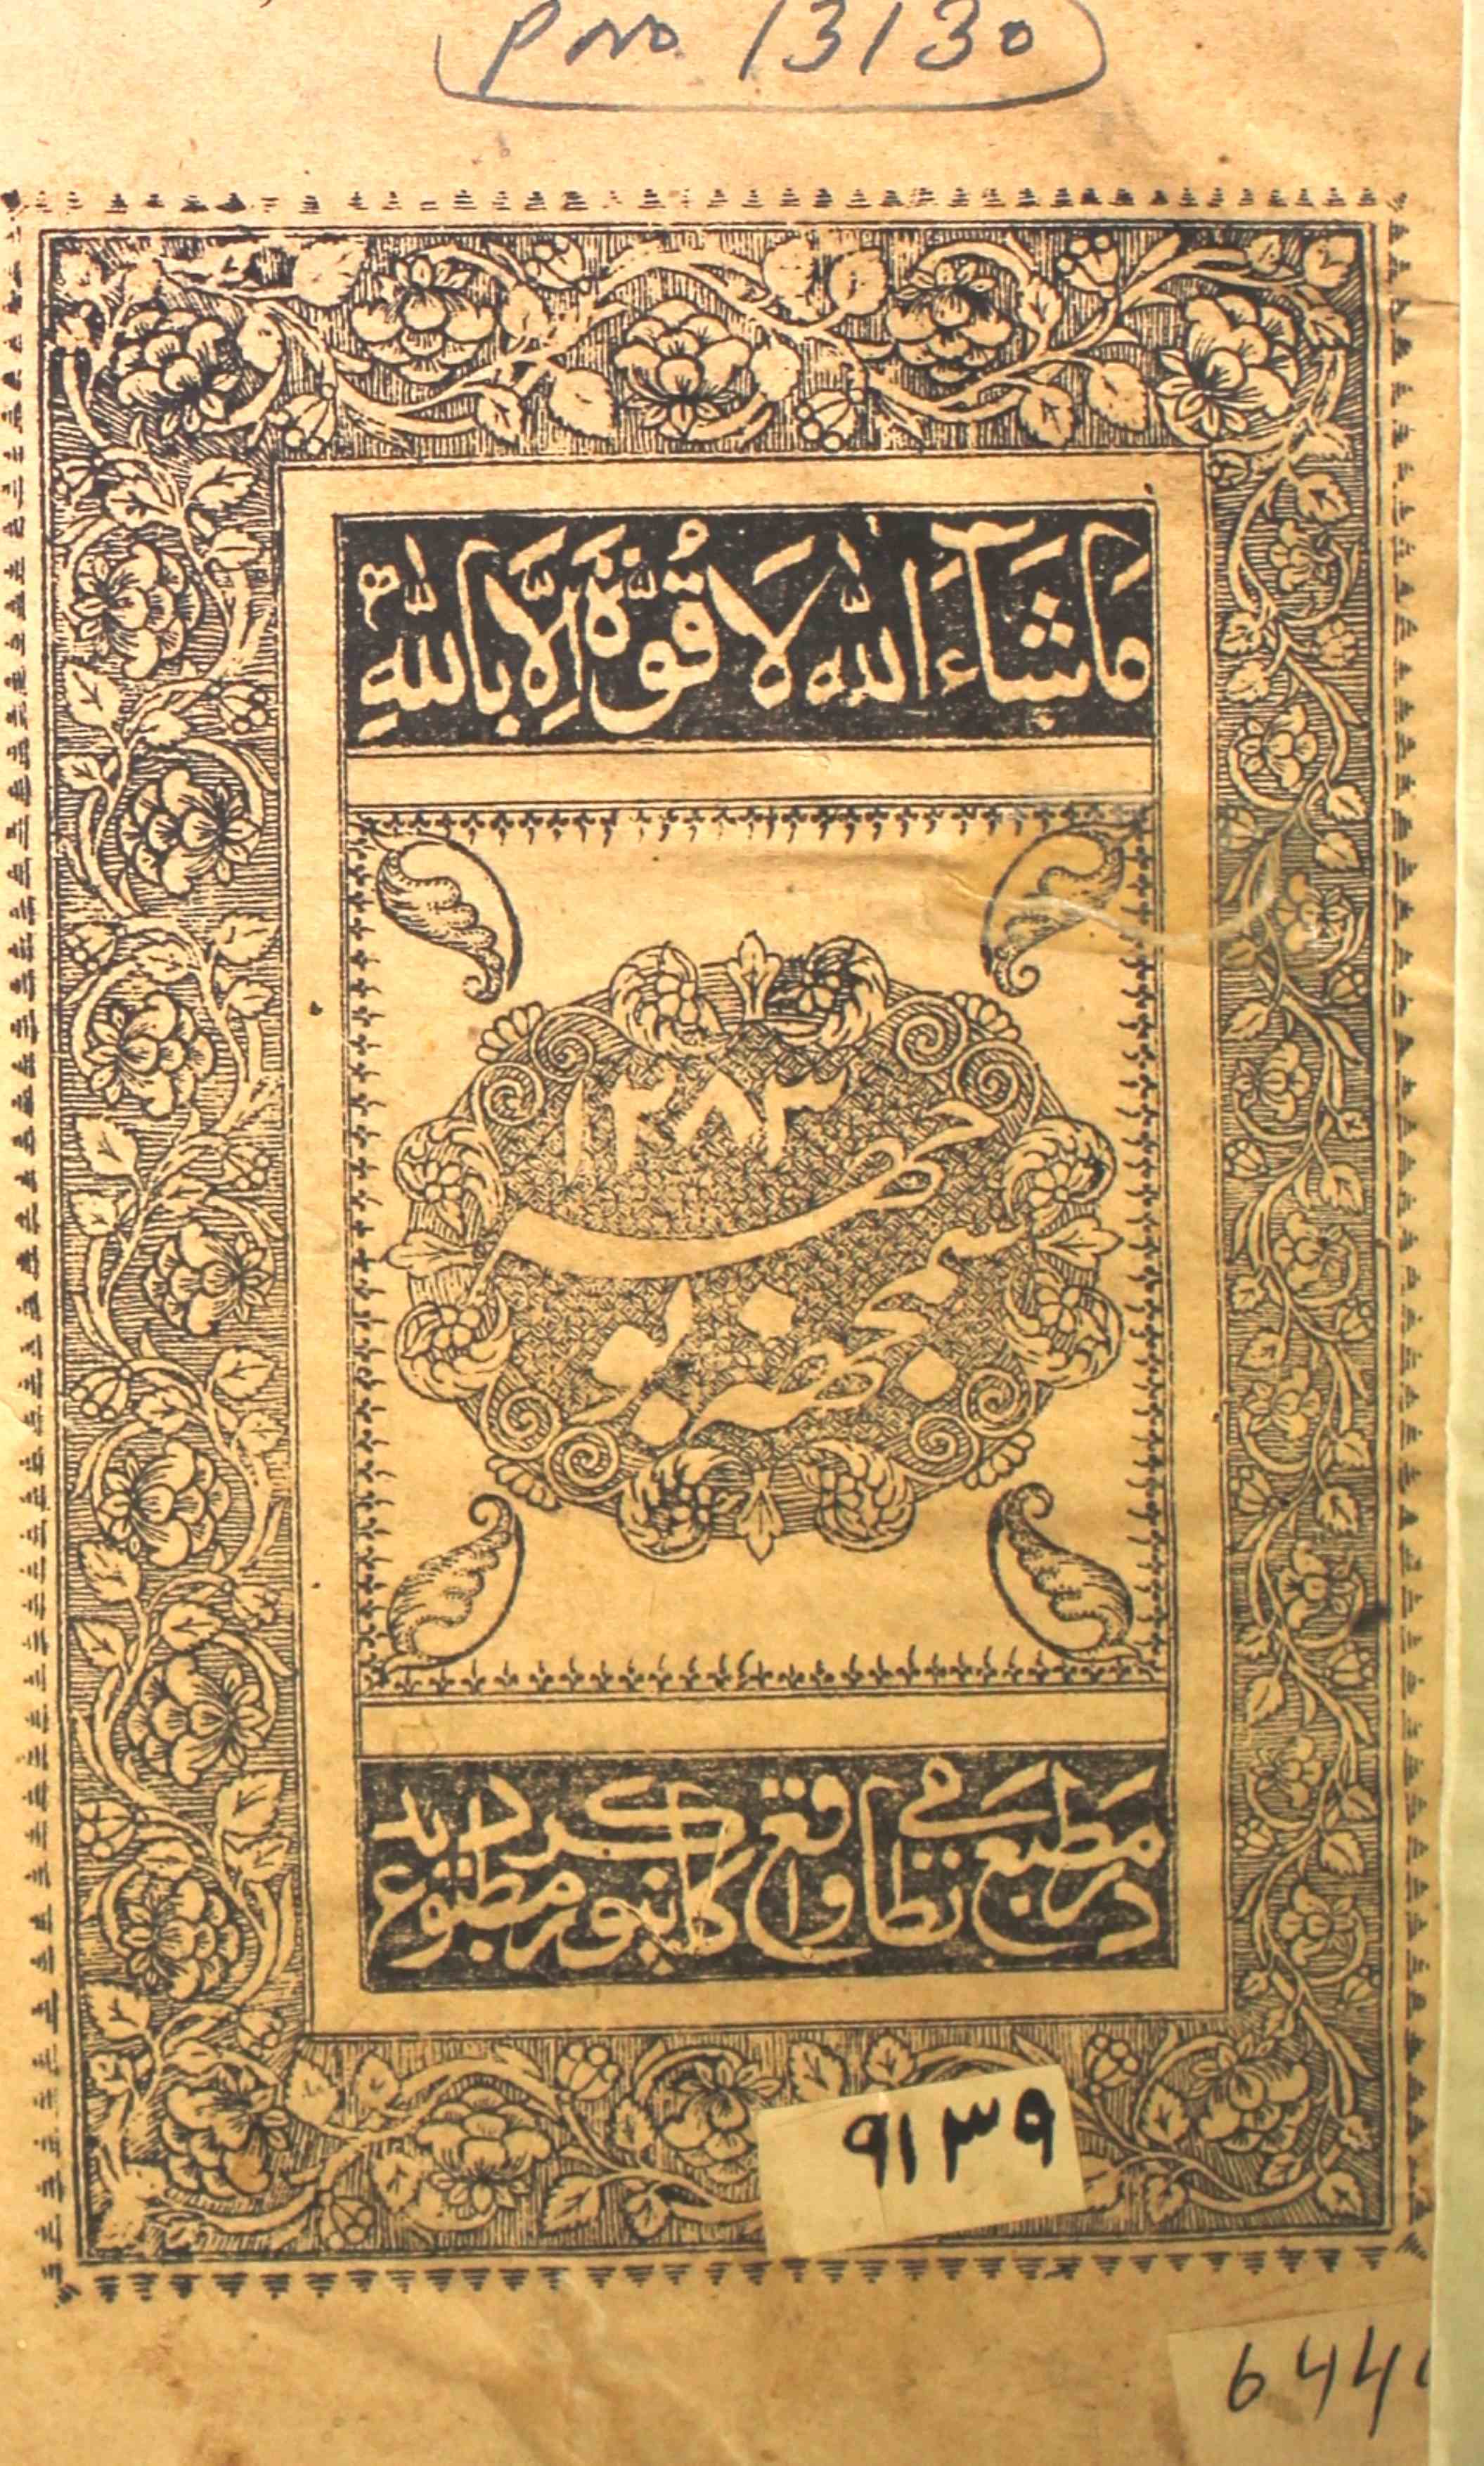 P No. 13130
مَاشَآءَ اللّٰه لَا قُوَّةَ اِلَّا بِاللّٰهِ
۱۲۸۳
در مطبع نظامی واقع کانپور مطبوع کردید
۹۱۳۹
644